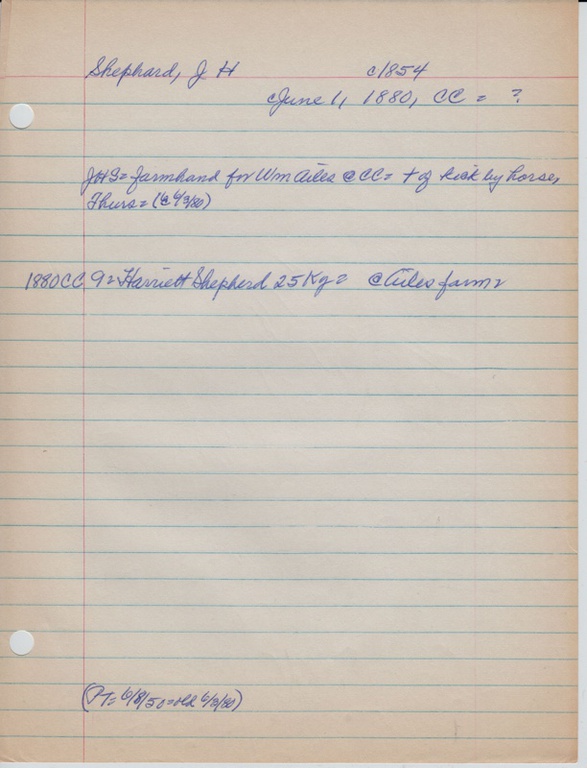 Shephard, J H c1854
June 1, 1880, CC = ?
JHS = farmhand for Wm Ailes @ CC = + of kick by horse,
Thurs = (C 6/3/80)
1880CC 9 = Harriett Shepherd 25 Ky = @ Ailes farm =
(PT = 6/8/50 = old 6/8/80)